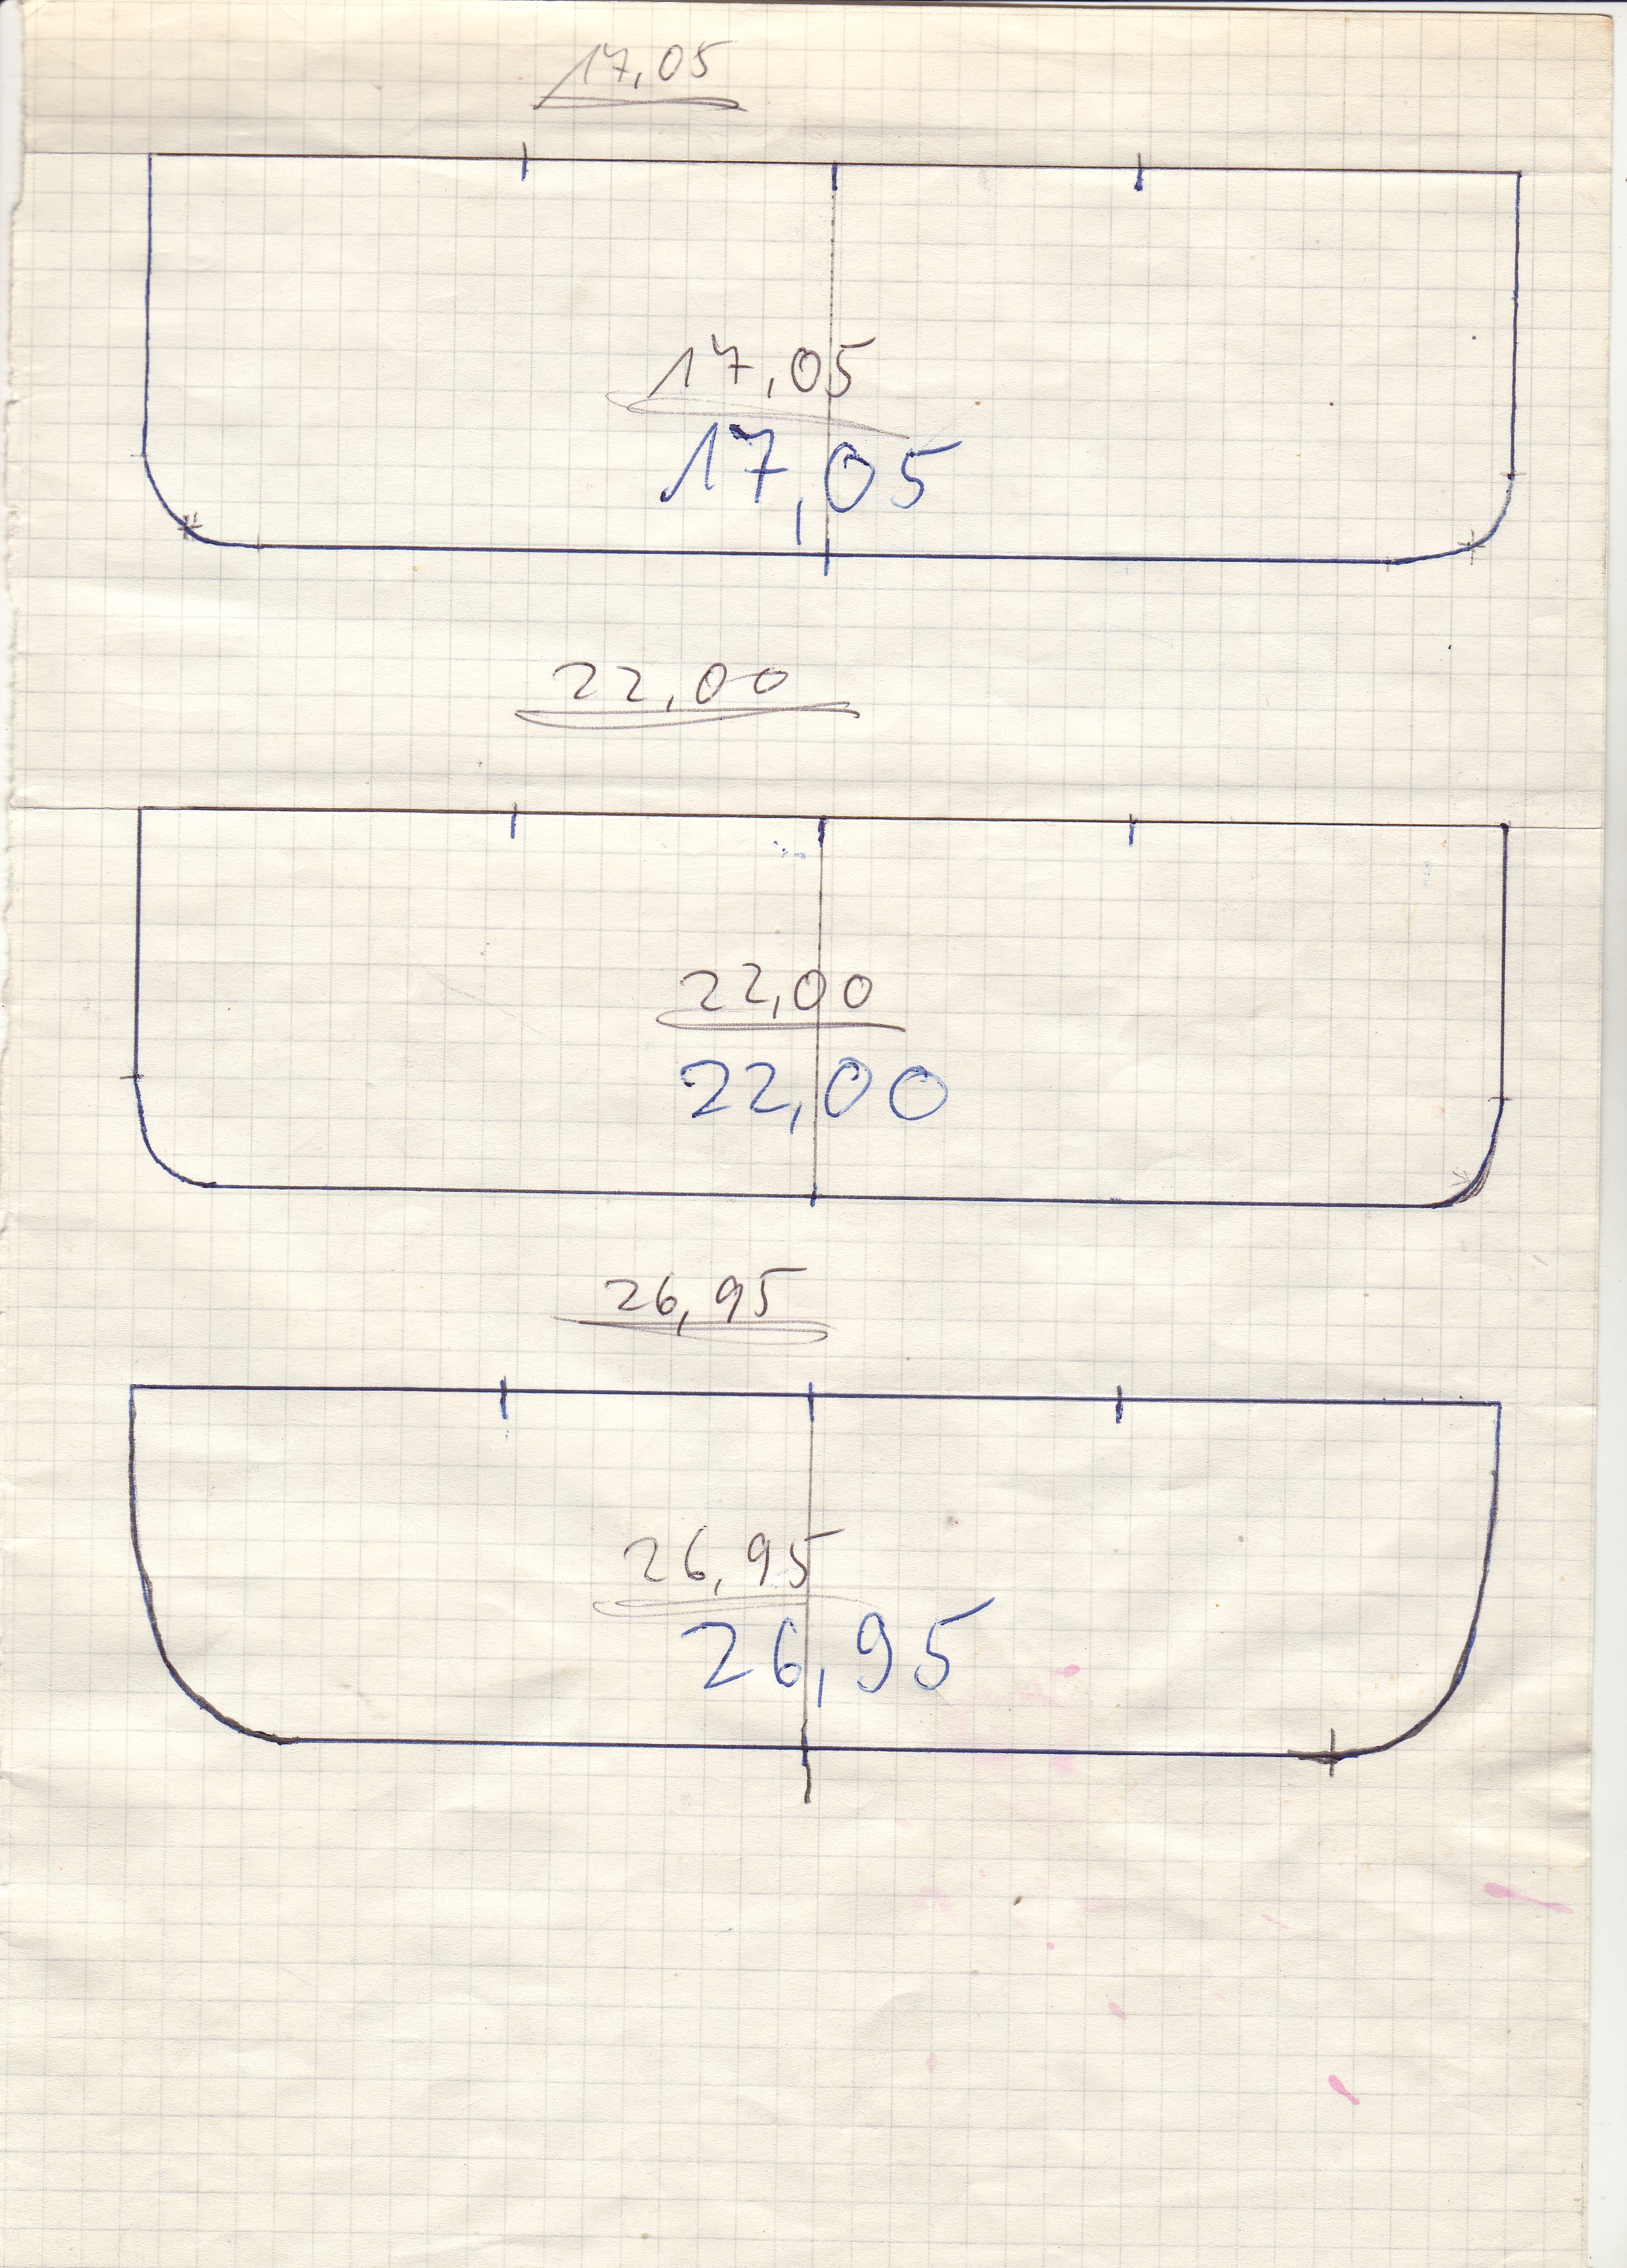 17,05
17,05
17,05
22,00
22,00
22,00
26,95
26,95
26,95